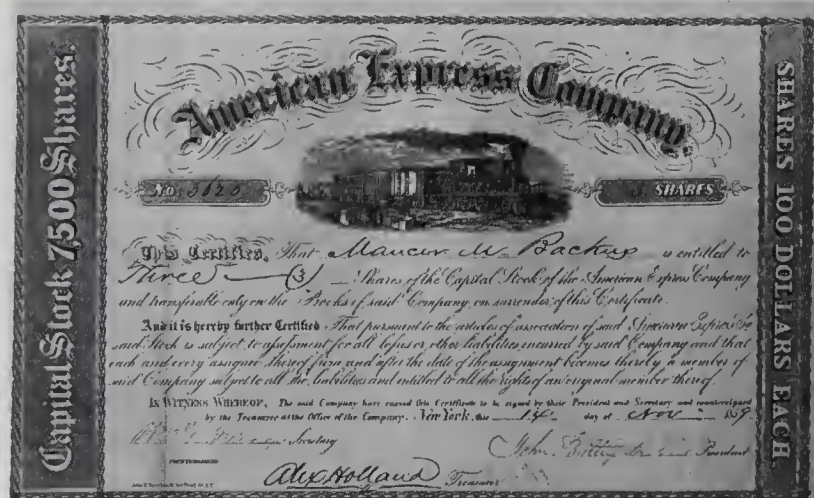 American Express Company,
Capital Stock 7,500 Shares.
No. 3620
SHARES
SHARES 100 DOLLARS EACH.
This Certifies, That M. Backus is entitled to
Three (3) Shares of the Capital Stock of the American Express Company
and transferable only on the Books of said Company, on surrender of this Certificate.
And it is hereby further Certified That pursuant to the articles of association of said American Express Co.
said Stock is subject to assessment for all losses or other liabilities incurred by said Company and that
each and every assignee thereof from and after the date of the assignment becomes thereby a member of
said Company subject to all the liabilities and entitled to all the rights of an original member thereof.
IN WITNESS WHEREOF, The said Company have caused this Certificate to be signed by their President and Secretary and countersigned
by the Treasurer at the Office of the Company, New York, this 14 day of Nov
Secretary
John President
Alex Holland Treasurer